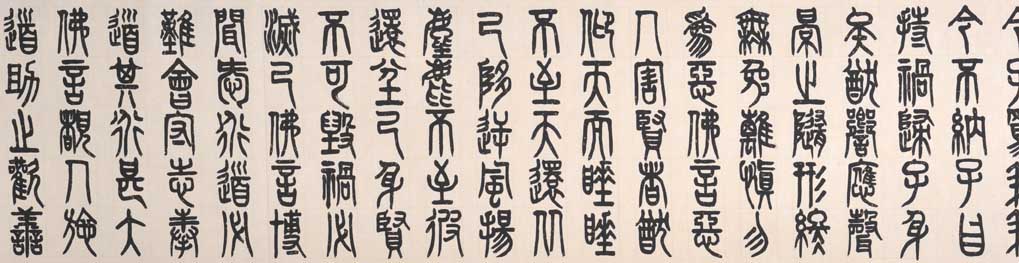 今子罵我我
今不納子自
持禍歸子身
矣猷響應聲
景之隨形終
無免離慎勿
為惡佛言惡
人害賢者猷
仰天而唾唾
不至天還从
己陊逆風揚
塵塵不至彼
還坌己身賢
不可毀禍必
滅己佛言博
聞愛道道必
難會守志奉
道其道甚大
佛言覩人施
道助之歡善